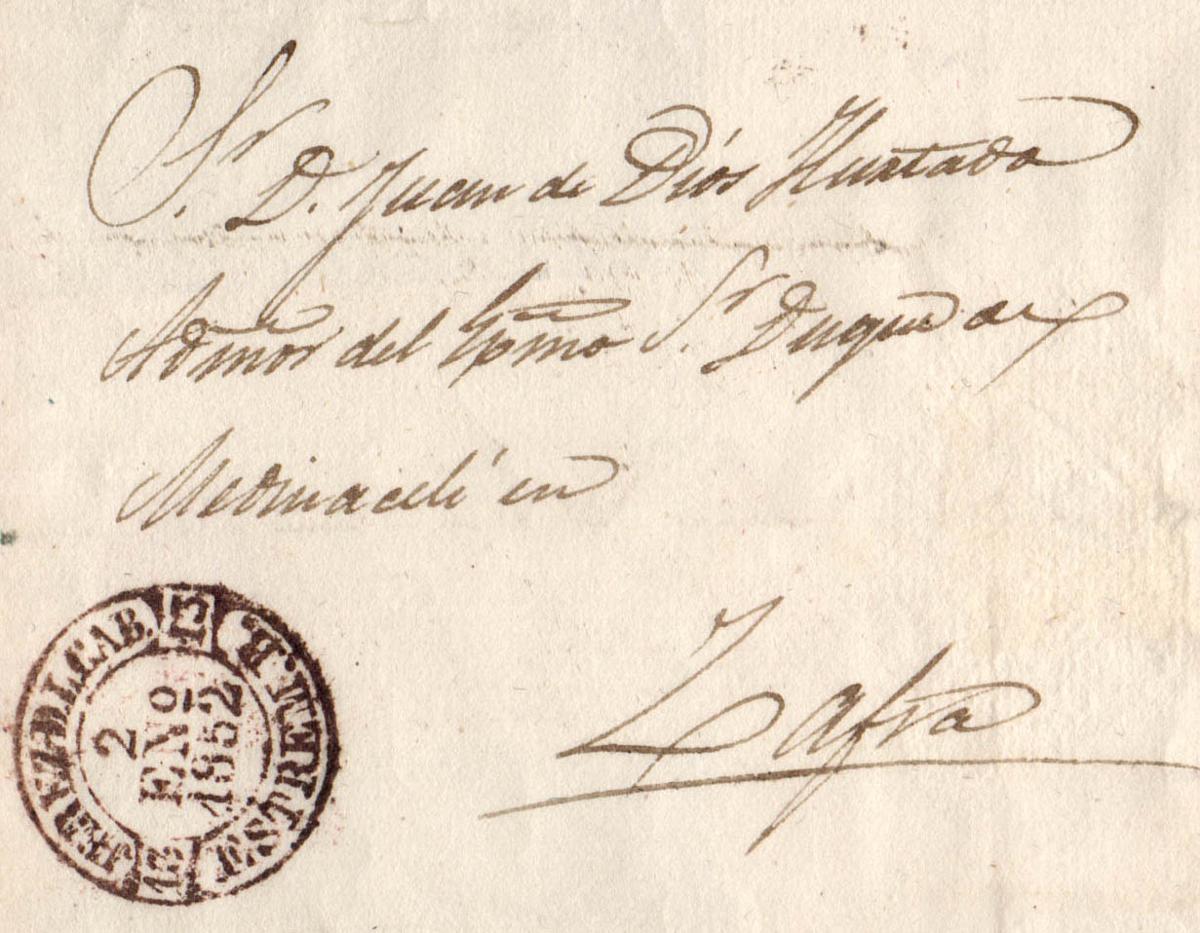 Sr. D. Juan de Dios Hurtado
Admor del Exmo Sr. Duque de
Medinaceli en
Zafra
JEREZ D L CAB.
2
ENO
1852